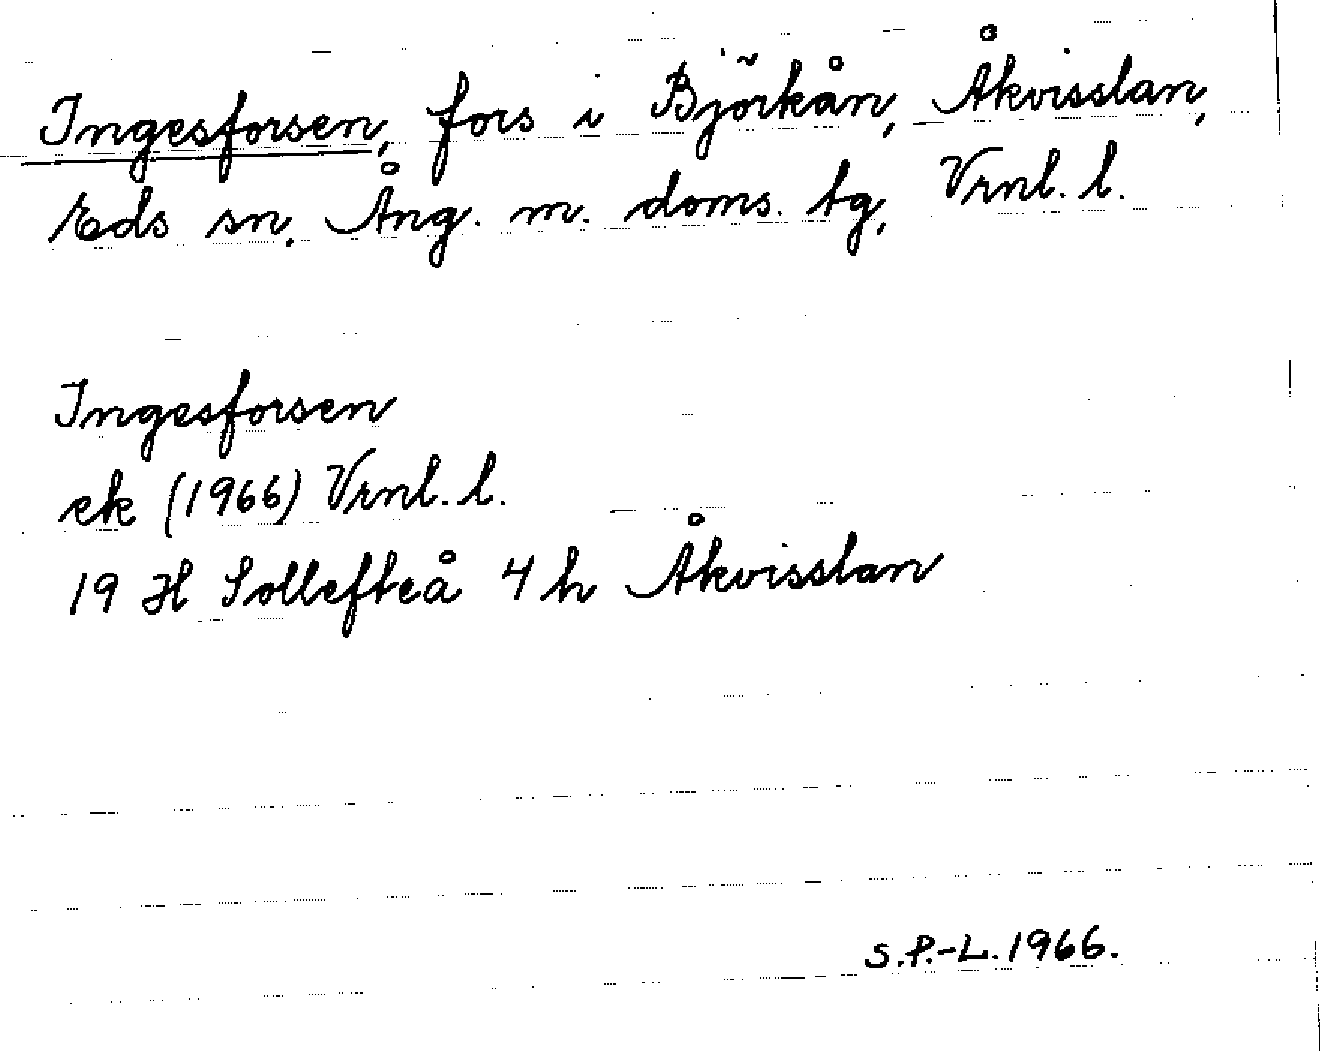 Ingesforsen, fors i Björkån, Åkvisslan,
Eds sn. Ång. m. doms. tg, Vrnl. l.
Ingesforsen
ek (1966) Vrnl. l.
19 H Sollefteå 4 h Åkvisslan
S.P.-L. 1966.